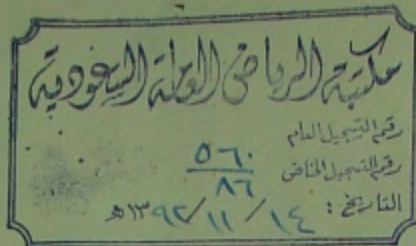 مكتبة الرياض العامة السعودية
رقم التسجيل العام ٥٦٠
رقم التسجيل الخاص ٨٦
التاريخ : ١٤ / ١١ / ١٣٩٢ هـ